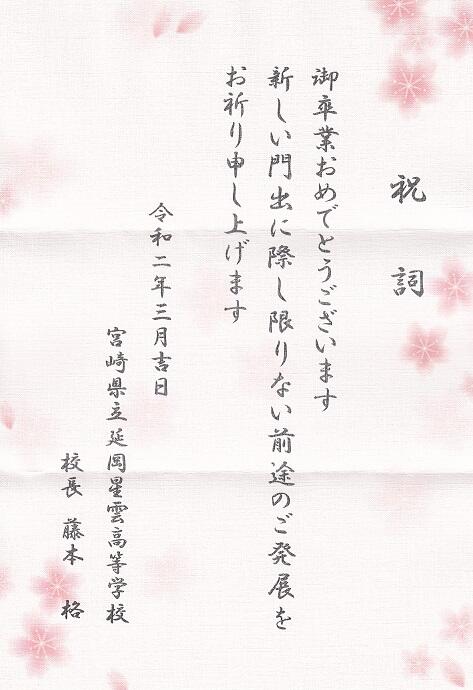 祝詞
御卒業おめでとうございます
新しい門出に際し限りない前途のご発展を
お祈り申し上げます
令和二年三月吉日
宮崎県立延岡星雲高等学校
校長 藤本 格